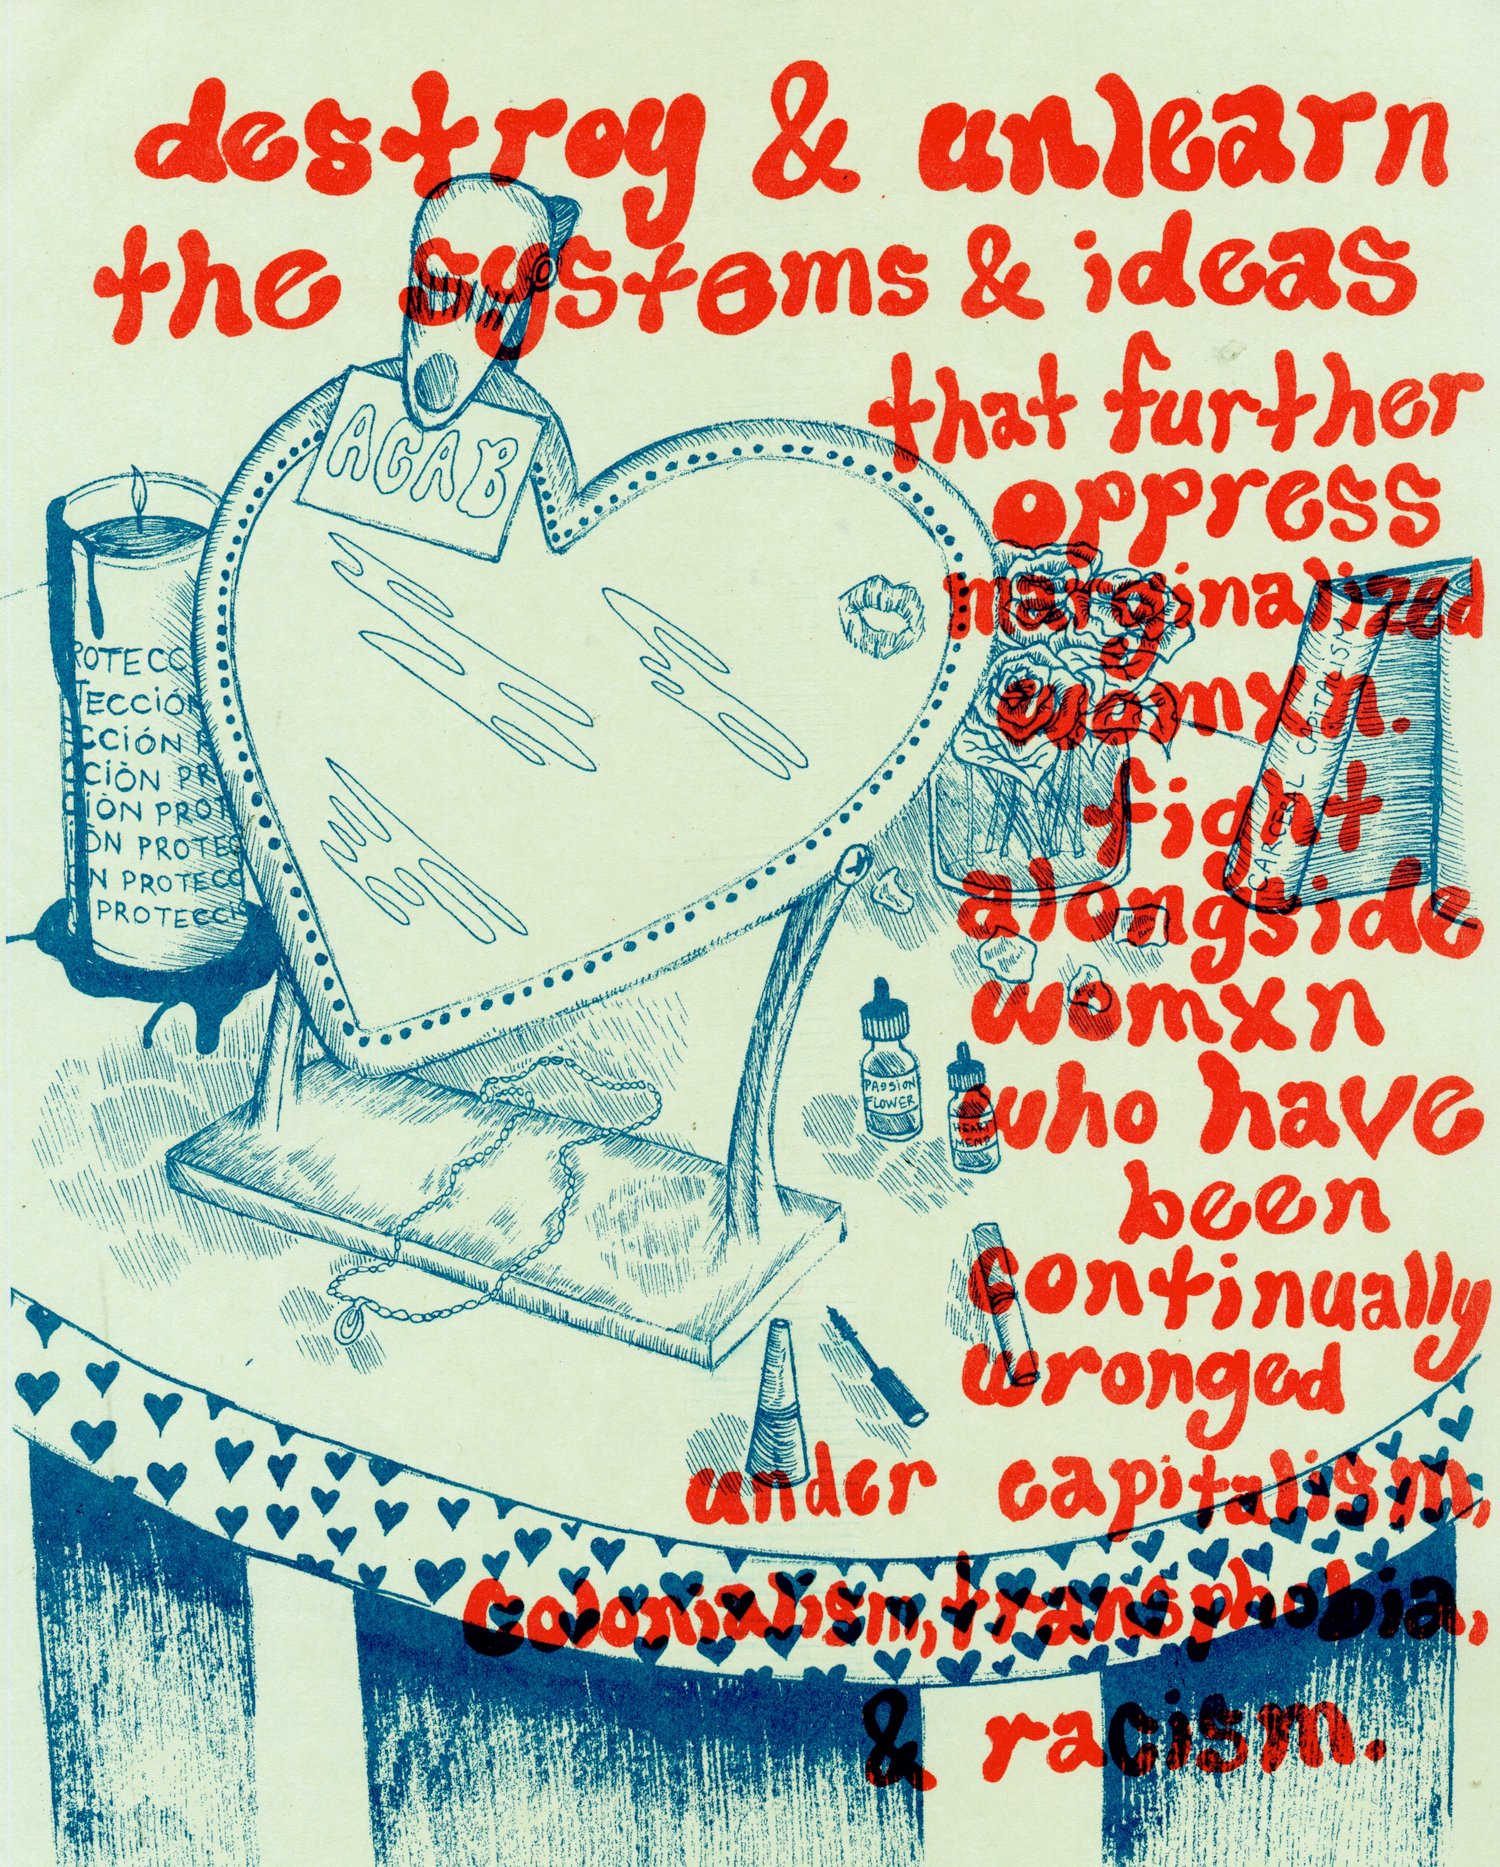 destroy & unlearn
the systems & ideas
that further
oppress
marginalized
womxn.
fight
alongside
womxn
who have
been
continually
wronged
under capitalism,
colonialism, transphobia,
& racism.
ACAB
ROTECC
TECCIÓN
CCIÓN P
CIÒN PR
IÓN PROT
ÒN PROTEC
N PROTECC
PROTECCI
CARCERAL CAPITALISM
PASSION
FLOWER
HEART
MEND